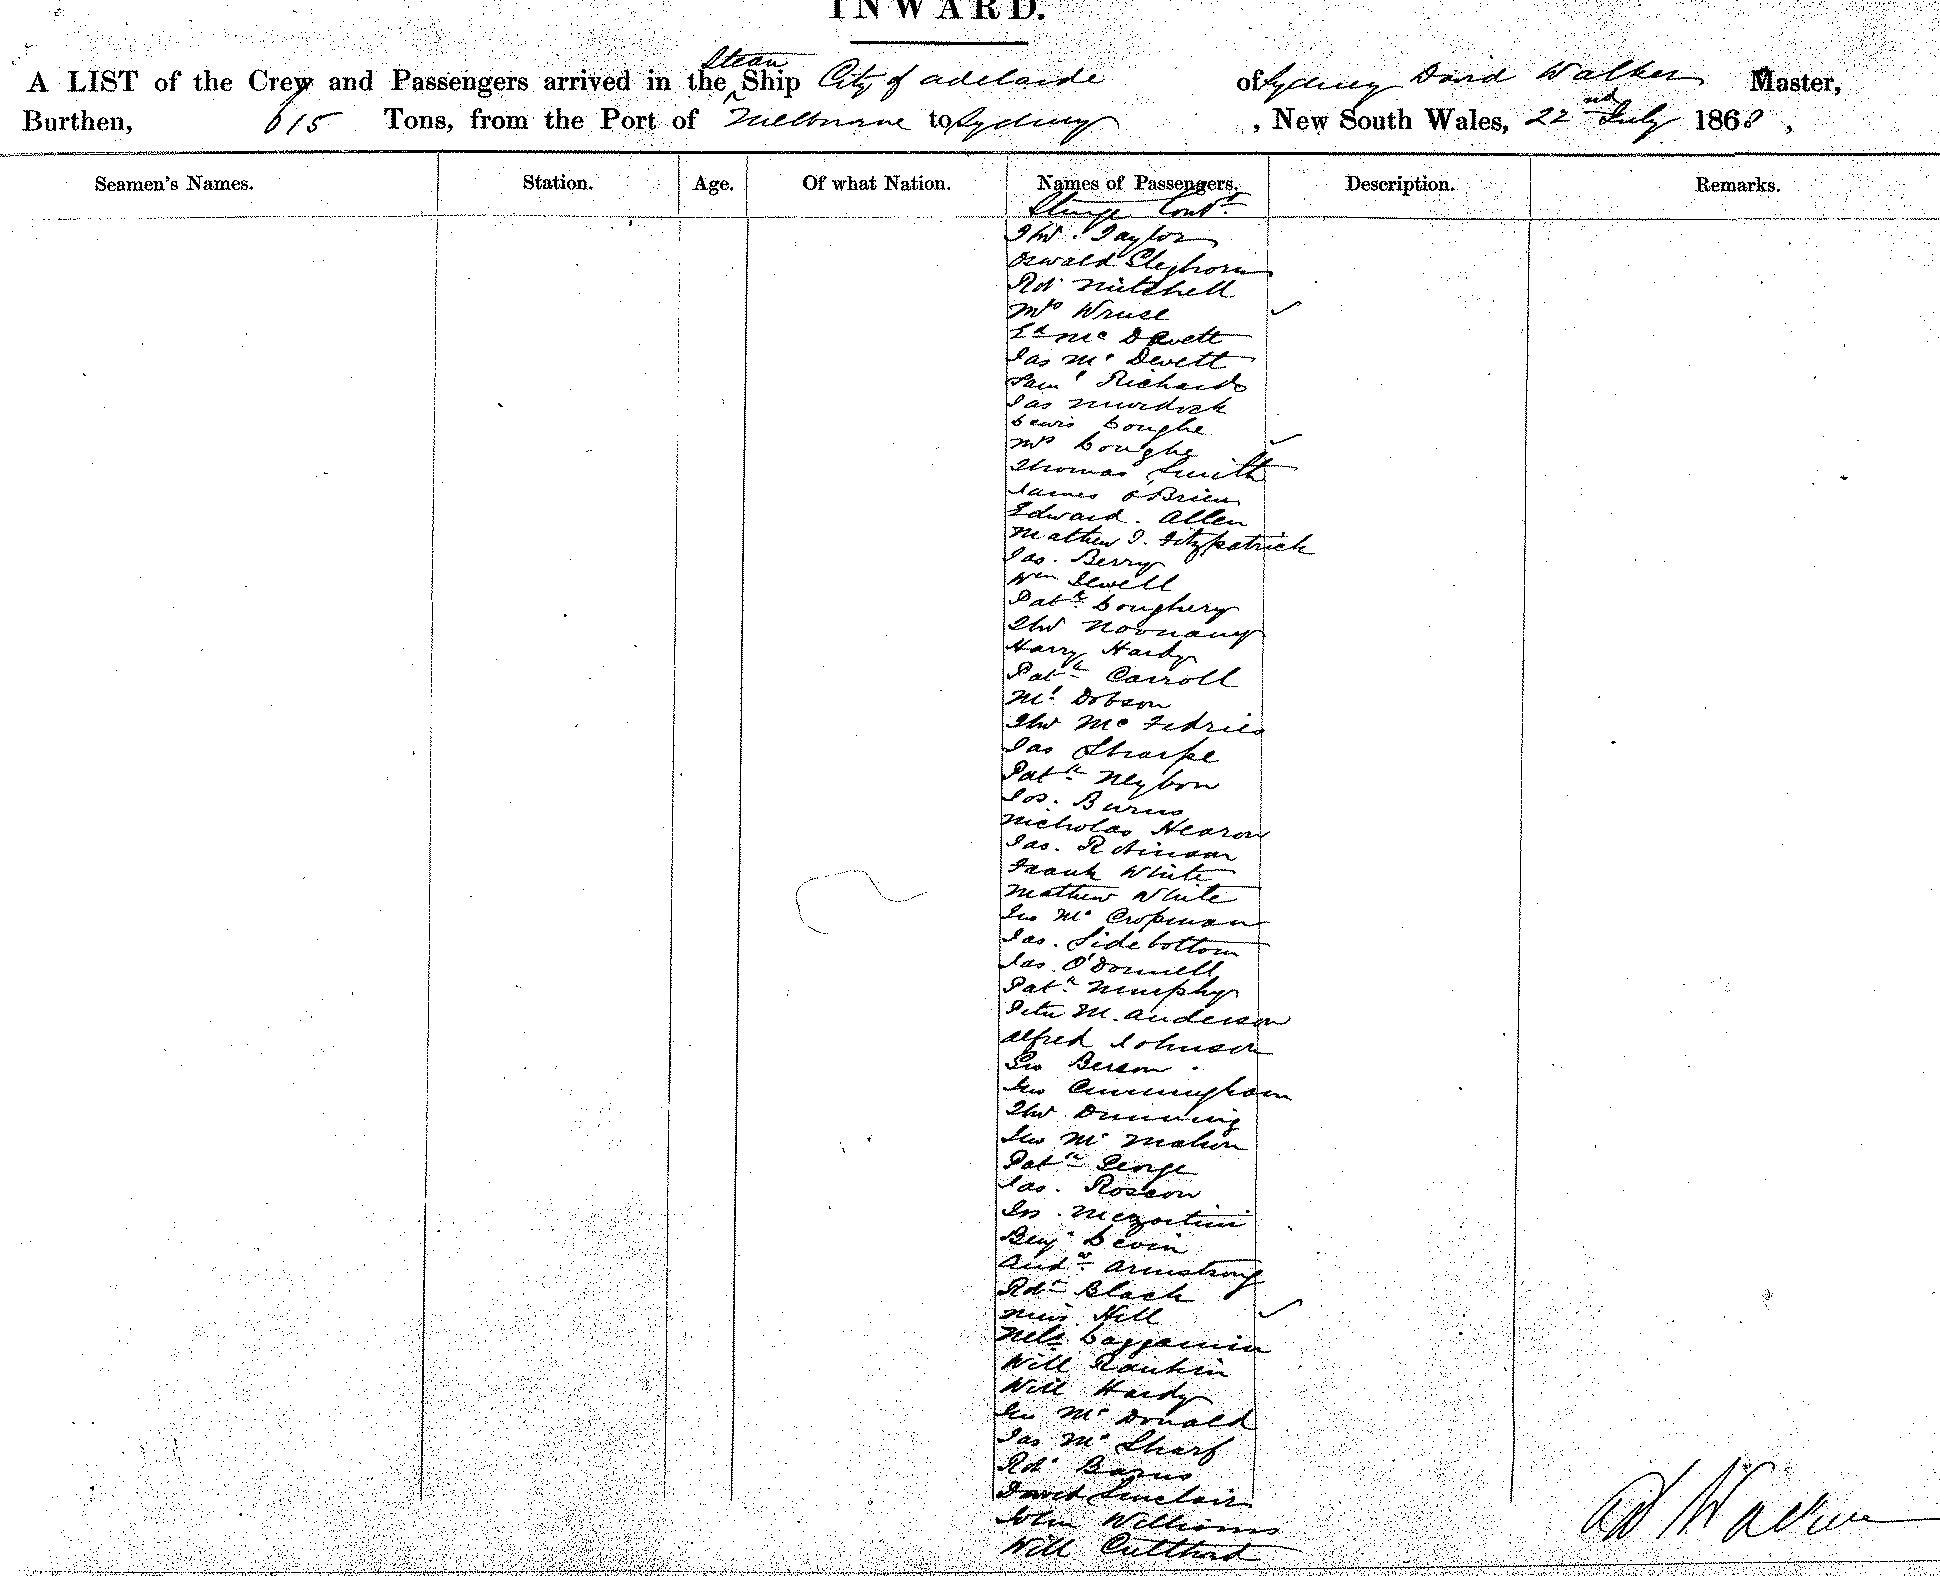 INWARD.
A LIST of the Crew and Passengers arrived in the Steam Ship City of Adelaide of Sydney David Walker Master,
Burthen, 615 Tons, from the Port of Melbourne to Sydney, New South Wales, 22nd July 1868,
Seamen's Names. Station. Age. Of what Nation. Names of Passengers. Description. Remarks.
Contd.
Thos. Taylor
Oswald Cleghorn
Rdt Mitchell
Mrs Wruse
Ed Mc Devett
Jas Mc Devett
Saml Richards
Jas Murdoch
Lewis Loughe
Mrs Loughe
Thomas Smith
James O'Brien
Edward. Allen
Mathew J. Fitzpatrick
Jas. Berry
Wm Sewell
Patk Loughery
Thos
Harry Hardy
Patk Carroll
Dobson
Thos Mc Fedries
Jas Sharpe
Patk
Jos. Burns
Nicholas Hearon
Jas. Robinson
Frank White
Mathew White
Jno Mc
Jas. Sidebottom
Jas. O'Donnell
Patk Murphy
Peter M. Anderson
Alfred Johnson
Geo
Geo Cunningham
Thos Dunning
Jno Mc Mahon
Patk George
Jas. Roscow
Jos.
Benj Levin
Andw Armstrong
Rdt Black
Miss Hill
Will Rankin
Will Hardy
Jno Mc Donald
Jas Mc Sharf
Rdt
David Sinclair
John Williams
Will Cutthord
D Walker